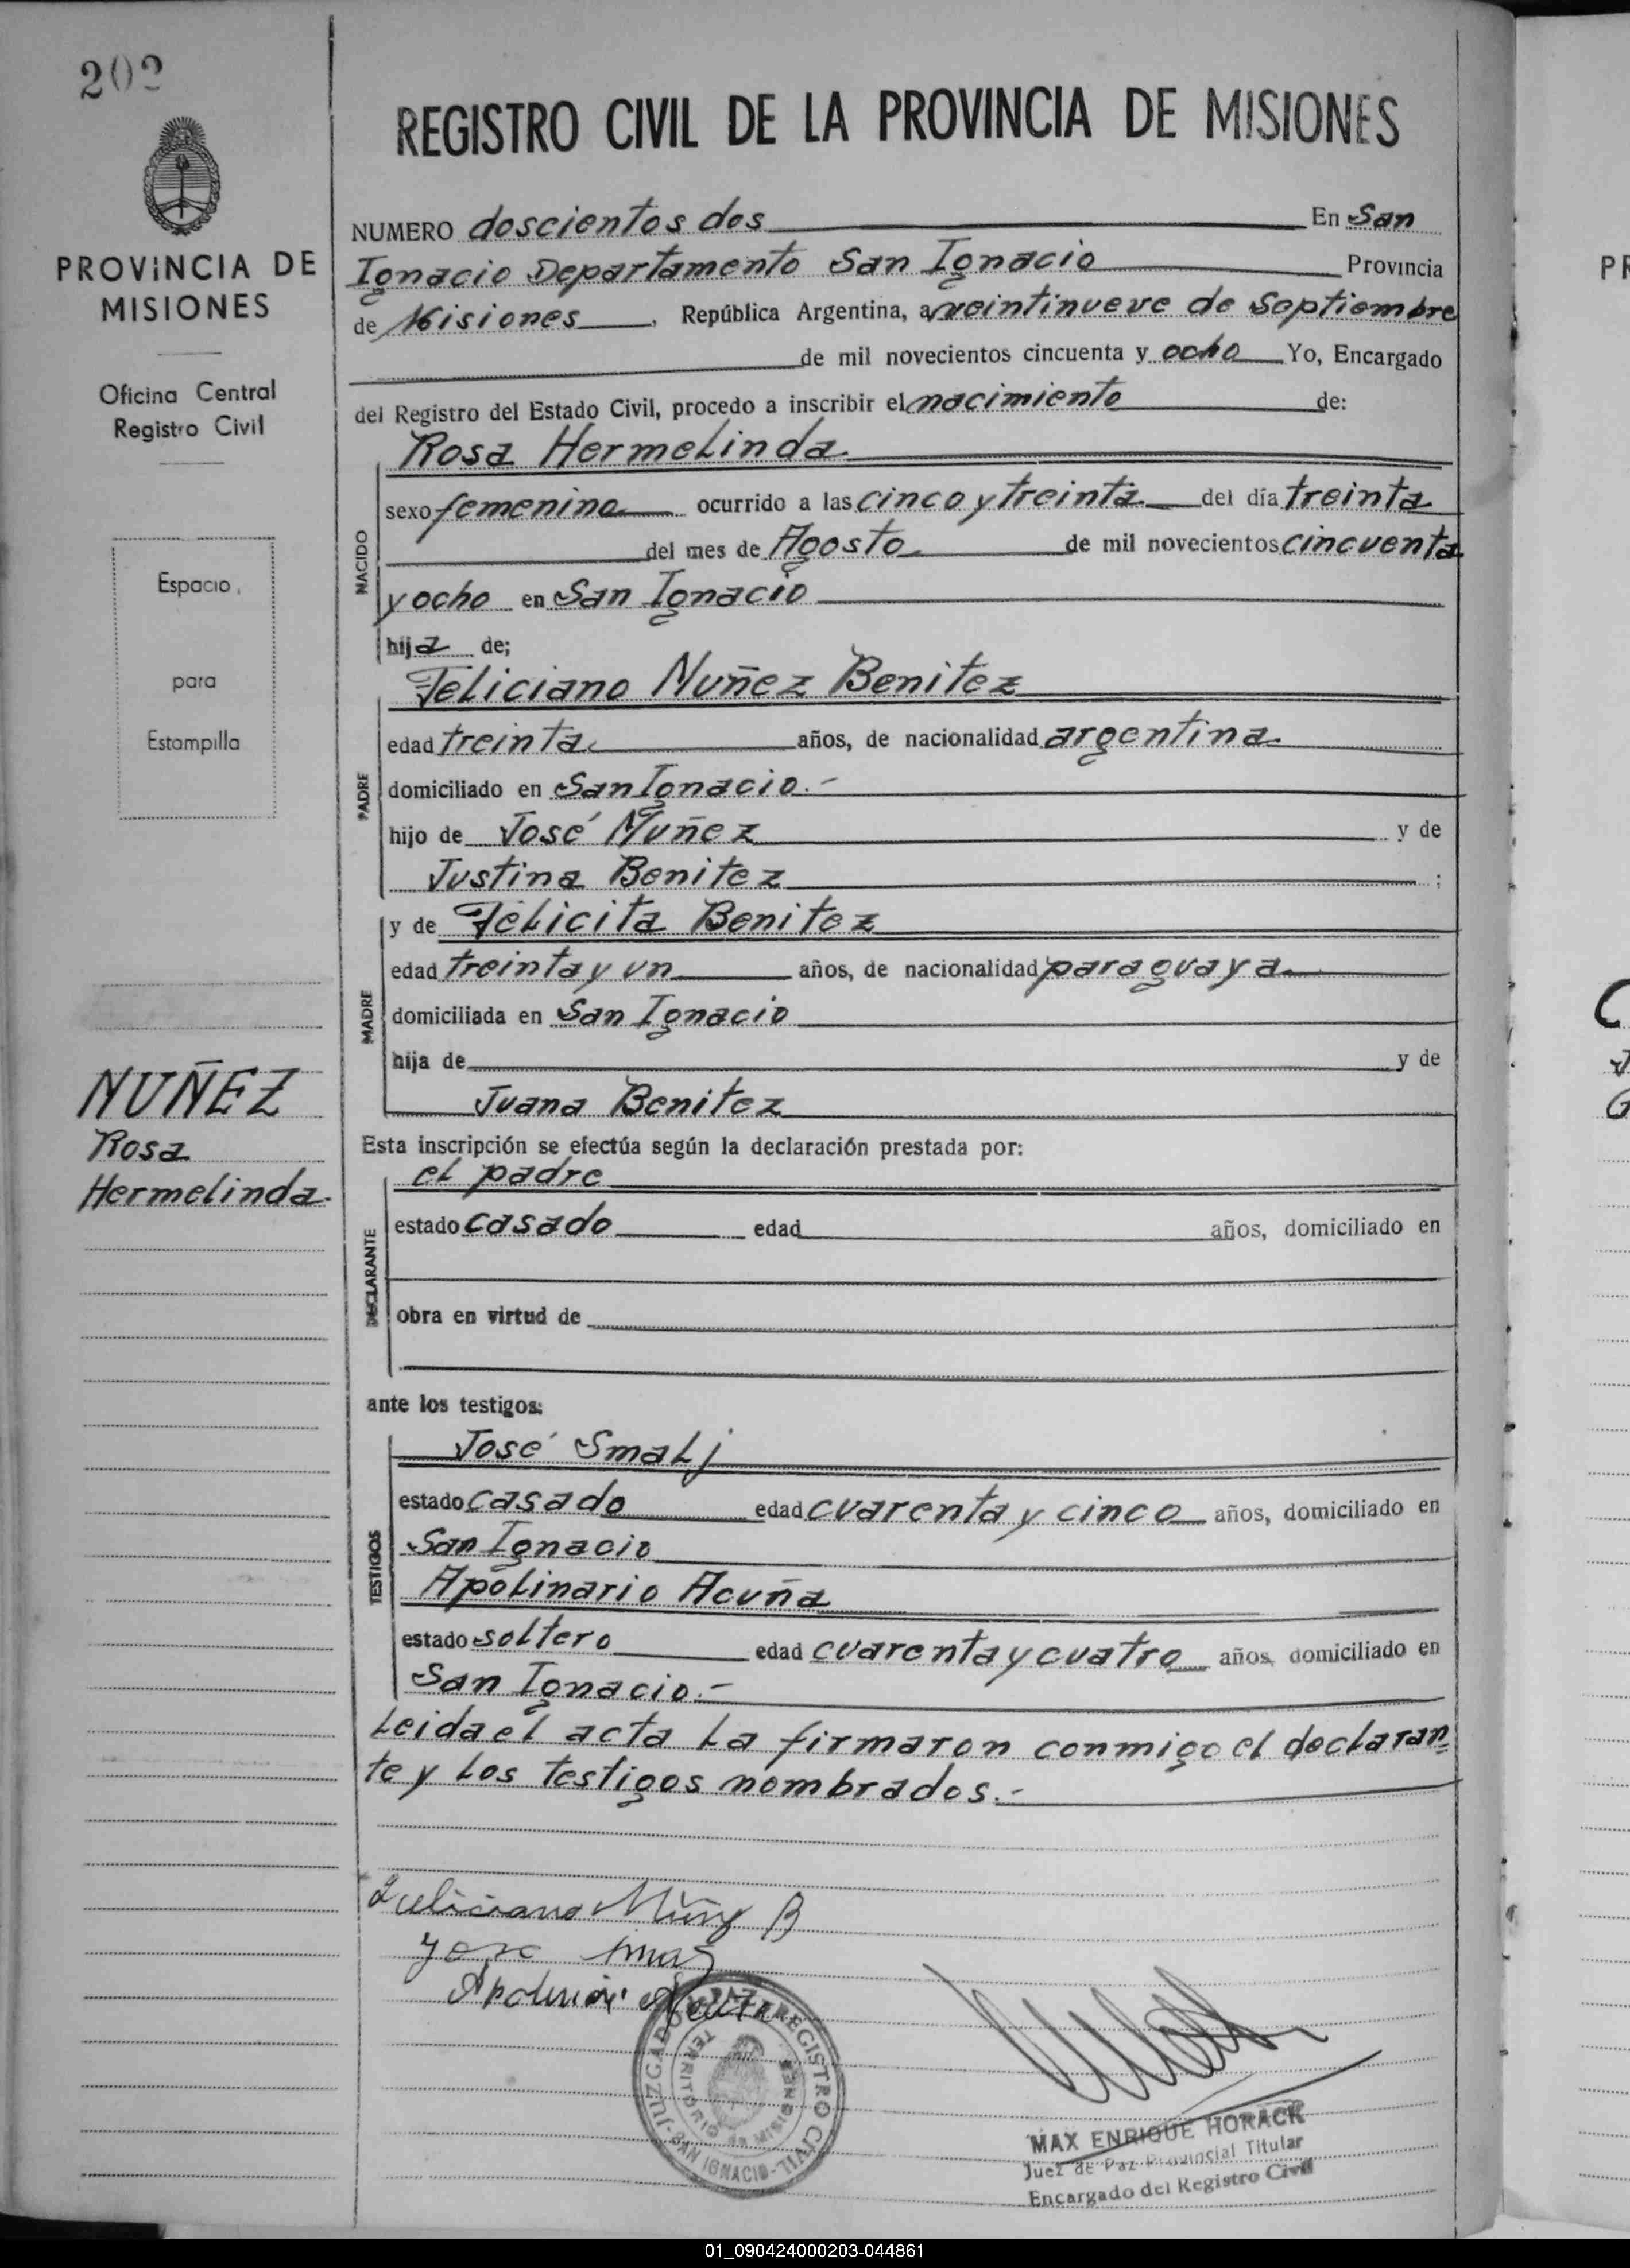 202
PROVINCIA DE
MISIONES
Oficina Central
Registro Civil
Espacio
para
Estampilla
NUÑEZ
Rosa
Hermelinda.
REGISTRO CIVIL DE LA PROVINCIA DE MISIONES
NUMERO doscientos dos En San
Ignacio Departamento San Ignacio Provincia
de Misiones, República Argentina, a veintinueve de Septiembre
de mil novecientos cincuenta y ocho Yo, Encargado
del Registro del Estado Civil, procedo a inscribir el nacimiento de:
Rosa Hermelinda
NACIDO
sexo femenino ocurrido a las cinco y treinta del día treinta
del mes de Agosto de mil novecientos cincuenta
y ocho en San Ignacio
hija de;
Feliciano Nuñez Benitez
PADRE
edad treinta años, de nacionalidad argentina.
domiciliado en San Ignacio.-
hijo de José Nuñez y de
Justina Benitez ;
y de Felicita Benitez
MADRE
edad treinta y un años, de nacionalidad paraguaya
domiciliada en San Ignacio
hija de y de
Juana Benitez
Esta inscripción se efectúa según la declaración prestada por:
el padre
DECLARANTE
estado casado edad años, domiciliado en
obra en virtud de
ante los testigos:
José Smalj
TESTIGOS
estado casado edad cuarenta y cinco años, domiciliado en
San Ignacio
Apolinario Acuña
estado soltero edad cuarenta y cuatro años, domiciliado en
San Ignacio.-
Leida el acta la firmaron conmigo el declaran=
te y los testigos nombrados.-
Feliciano Nuñez B
Jose
JUZGADO DE PAZ Y REGISTRO CIVIL-SAN IGNACIO-
TERRITORIO DE MISIONES
MAX ENRIQUE HORACK
Juez de Paz Provincial Titular
Encargado del Registro Civil
01_090424000203-044861